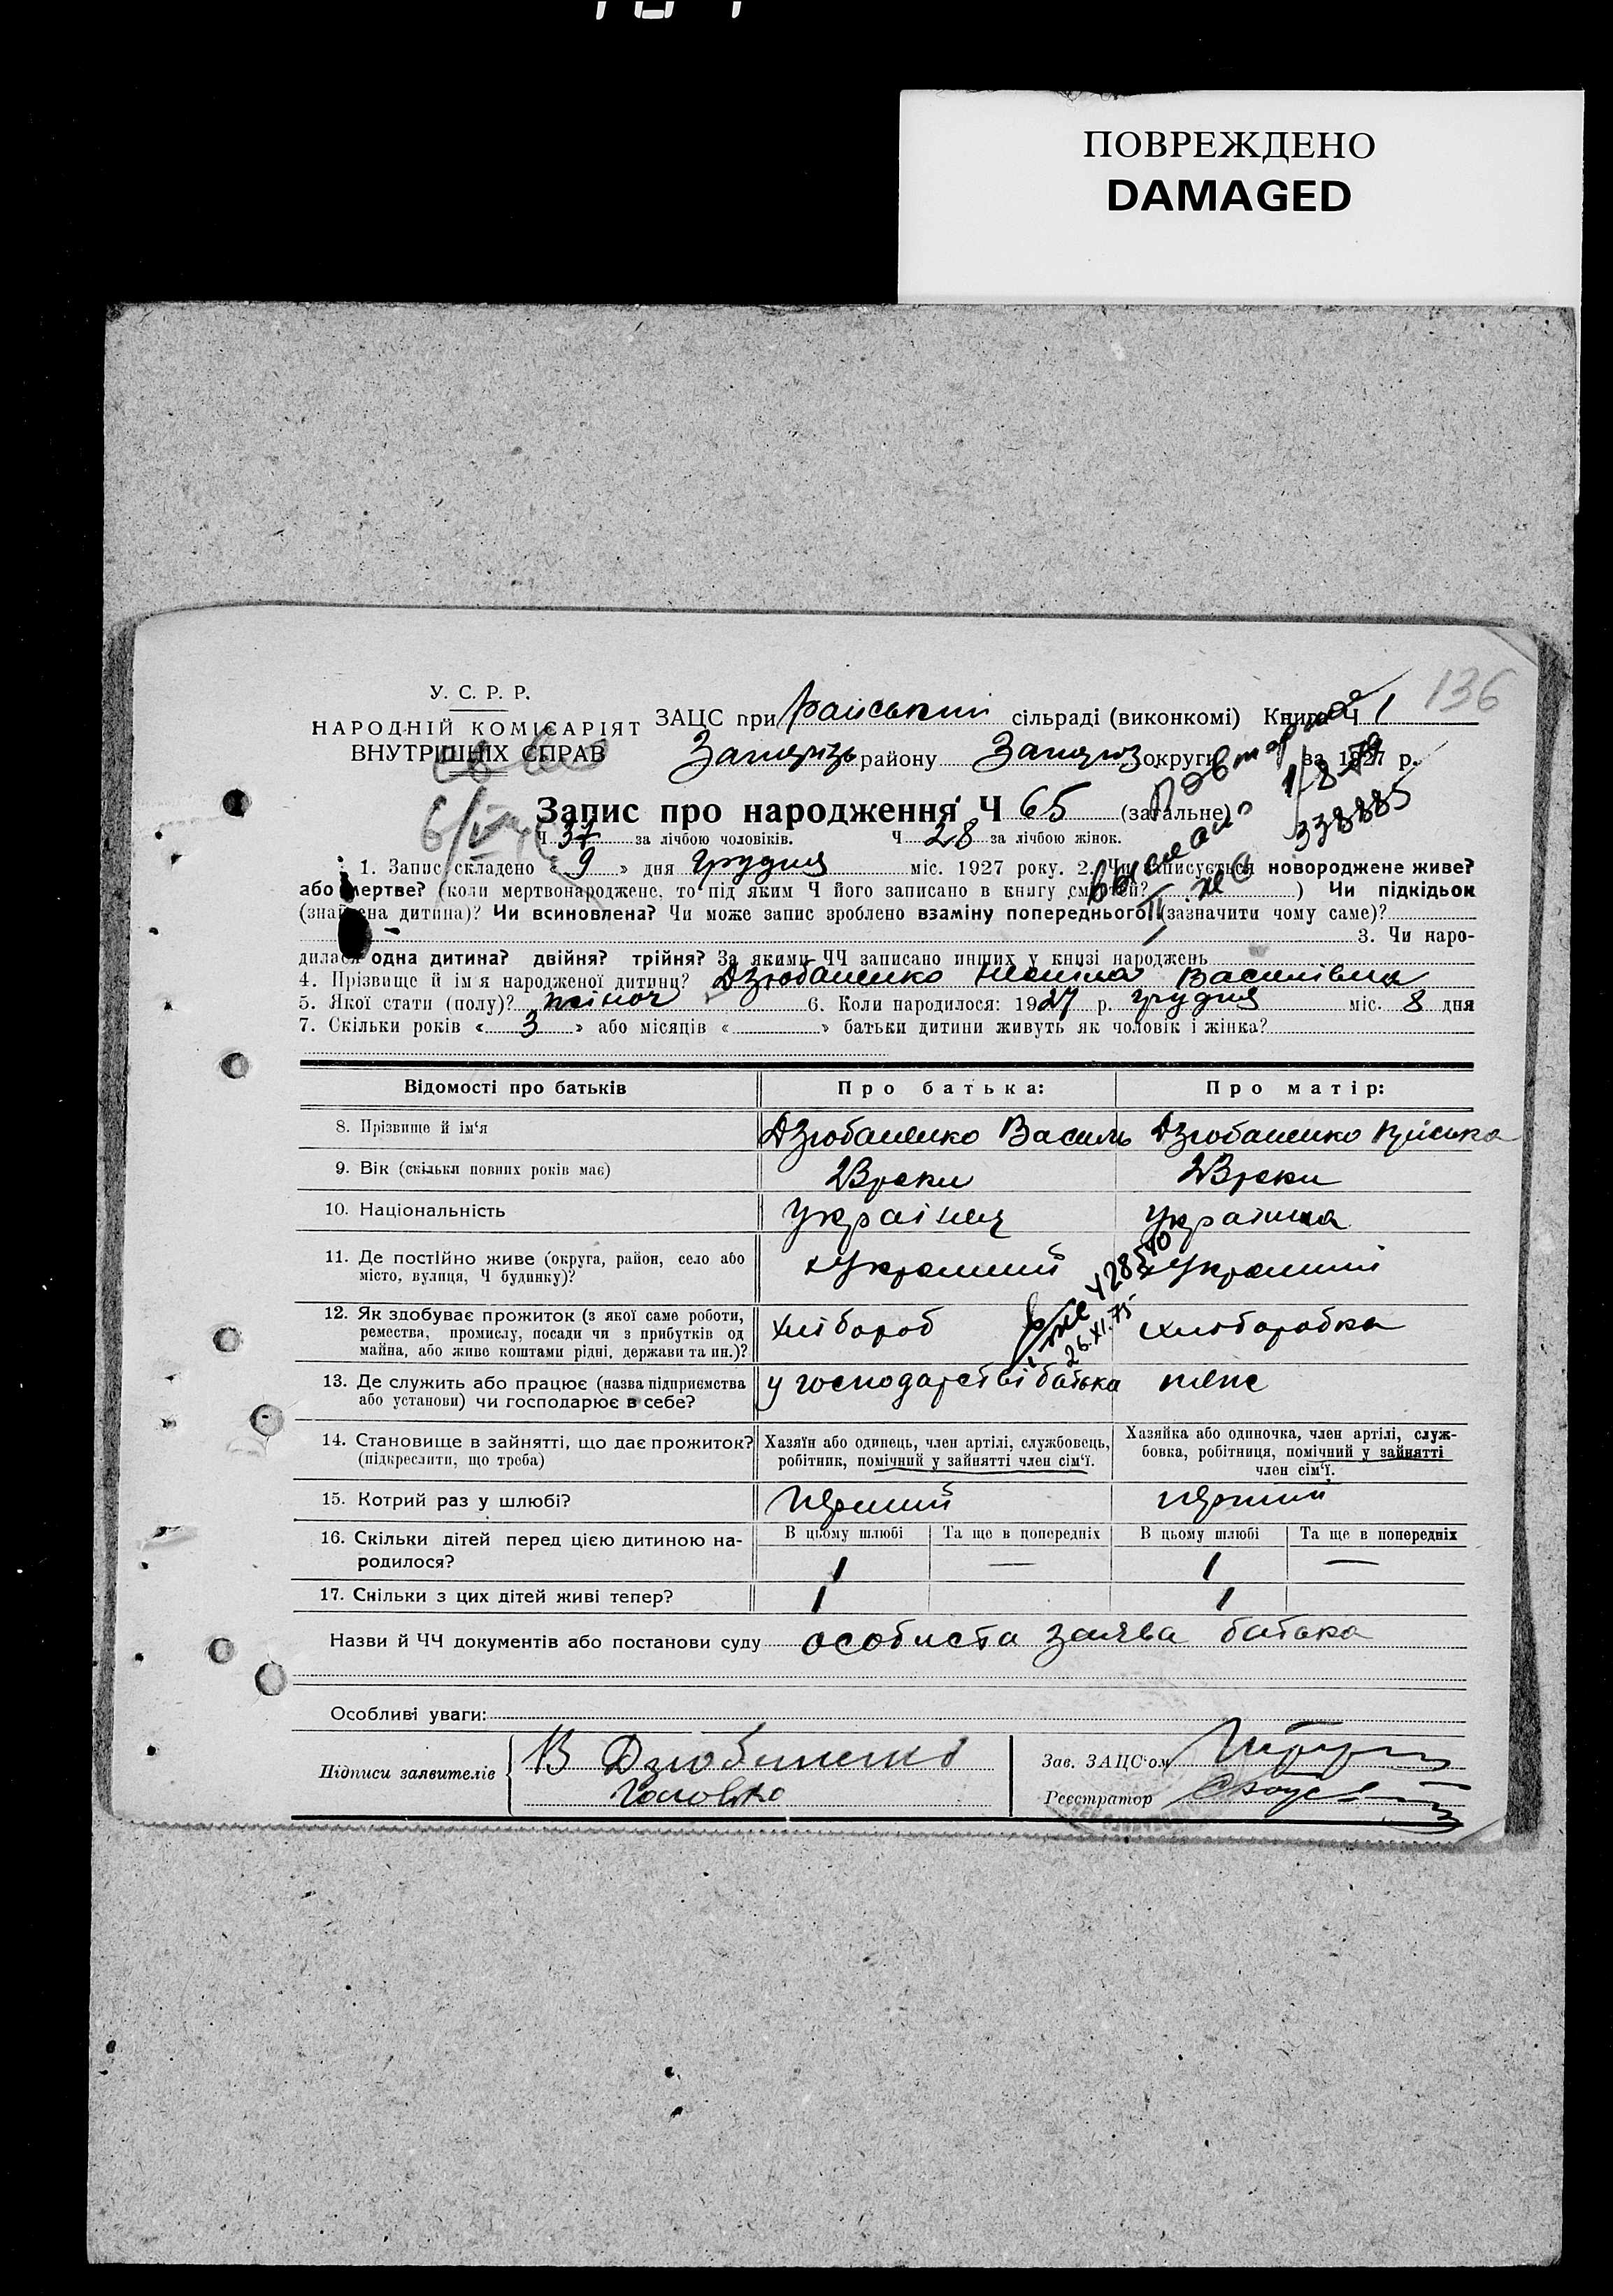 ПОВРЕЖДЕНО
DAMAGED
136
У. С. Р. Р.
НАРОДНІЙ КОМІСАРІЯТ
ВНУТРІШНІХ СПРАВ
ЗАЦС при сільраді (виконкомі) Книга Ч 1
району округи за 1927 р.
Повторное
1/8-79
338885
Запис про народження Ч 65 (загальне)
Ч 37 за лічбою чоловіків. Ч 28 за лічбою жінок.
1. Запис складено « 9 » дня грудня міс. 1927 року. 2. Чи записується новороджене живе?
або мертве? (коли мертвонароджене, то під яким Ч його записано в книгу смертей? ) Чи підкідьок
(знайдена дитина)? Чи всиновлена? Чи може запис зроблено взаміну попереднього (зазначити чому саме)?
3. Чи наро-
дилася одна дитина? двійня? трійня? За якими ЧЧ записано инших у книзі народжень
4. Прізвище й ім'я народженої дитини? Дзюбаненко Василівна
5. Якої стати (полу)? жіноч 6. Коли народилося: 1927 р. грудня міс. 8 дня
7. Скільки років « 3 » або місяців « » батьки дитини живуть як чоловік і жінка?
Відомості про батьків Про батька: Про матір:
8. Прізвище й ім'я Дзюбаненко Василь Дзюбаненко
9. Вік (скільки повних років має) 23 роки 23 роки
10. Національність Українец Українка
11. Де постійно живе (округа, район, село або
місто, вулиця, Ч будинку)?
12. Як здобуває прожиток (з якої саме роботи,
ремества, промислу, посади чи з прибутків од
майна, або живе коштами рідні, держави та ин.)? Хлібороб хліборобка
26.XI.75
13. Де служить або працює (назва підприємства
або установи) чи господарює в себе? у господарстві батька теж
14. Становище в зайнятті, що дає прожиток?
(підкреслити, що треба)
Хазяїн або одинець, член артілі, службовець,
робітник, помічний у зайнятті член сім'ї.
Хазяйка або одиночка, член артілі, служ-
бовка, робітниця, помічний у зайнятті
член сім'ї.
15. Котрий раз у шлюбі? перший перший
16. Скільки дітей перед цією дитиною на-
родилося?
В цьому шлюбі Та ще в попередніх В цьому шлюбі Та ще в попередніх
1 — 1 —
17. Скільки з цих дітей живі тепер? 1 1
Назви й ЧЧ документів або постанови суду особиста заява батька
Особливі уваги:
Підписи заявителів В Дзюбаненко
Зав. ЗАЦС'ом
Реєстратор